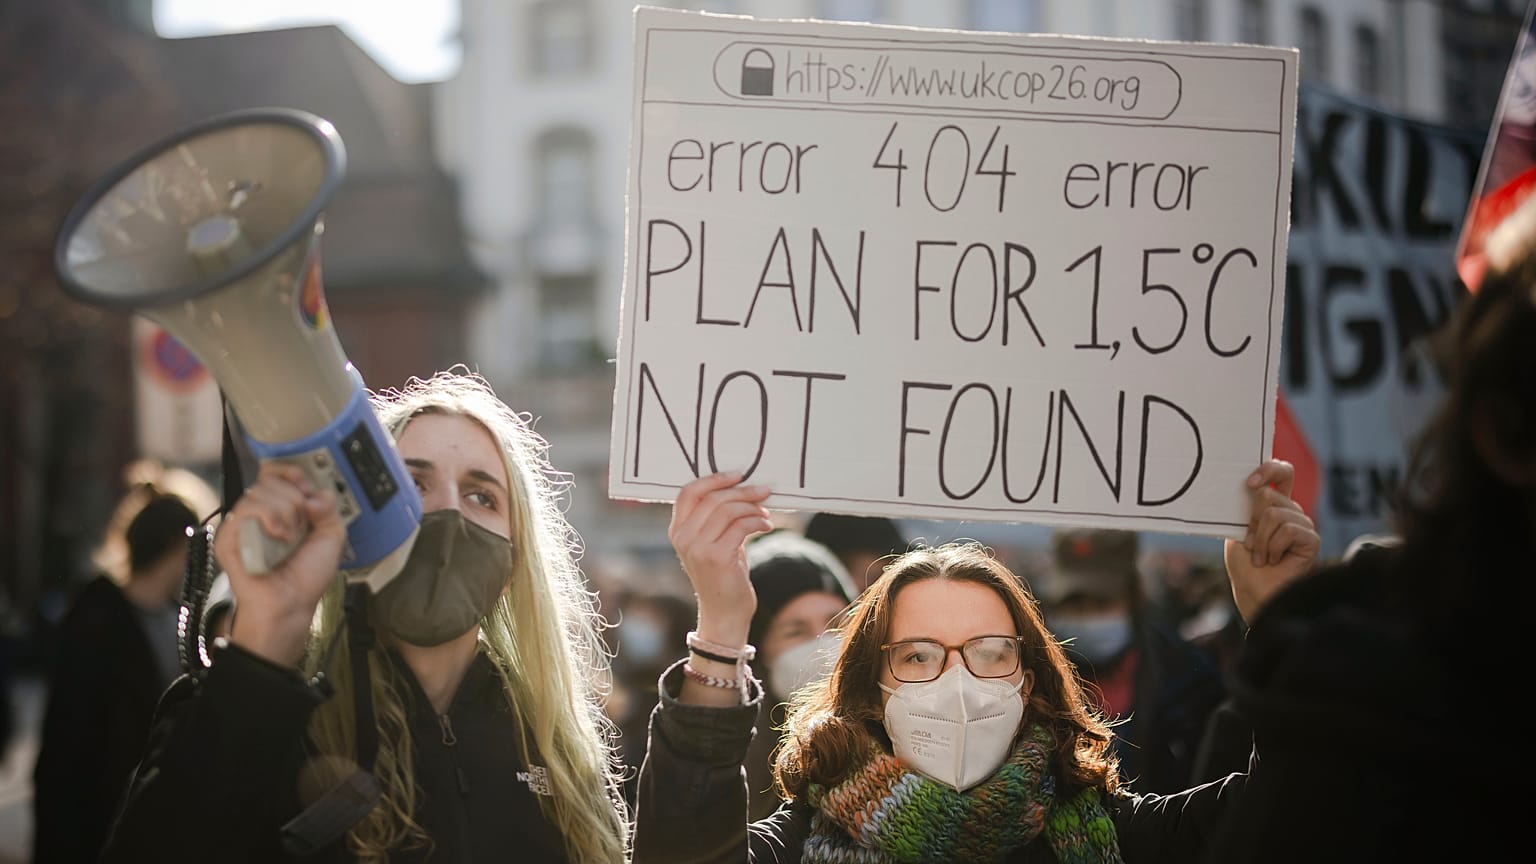 https://www.ukcop26.org
error 404 error
PLAN FOR 1,5°C
NOT FOUND
THE
NORTH
FACE